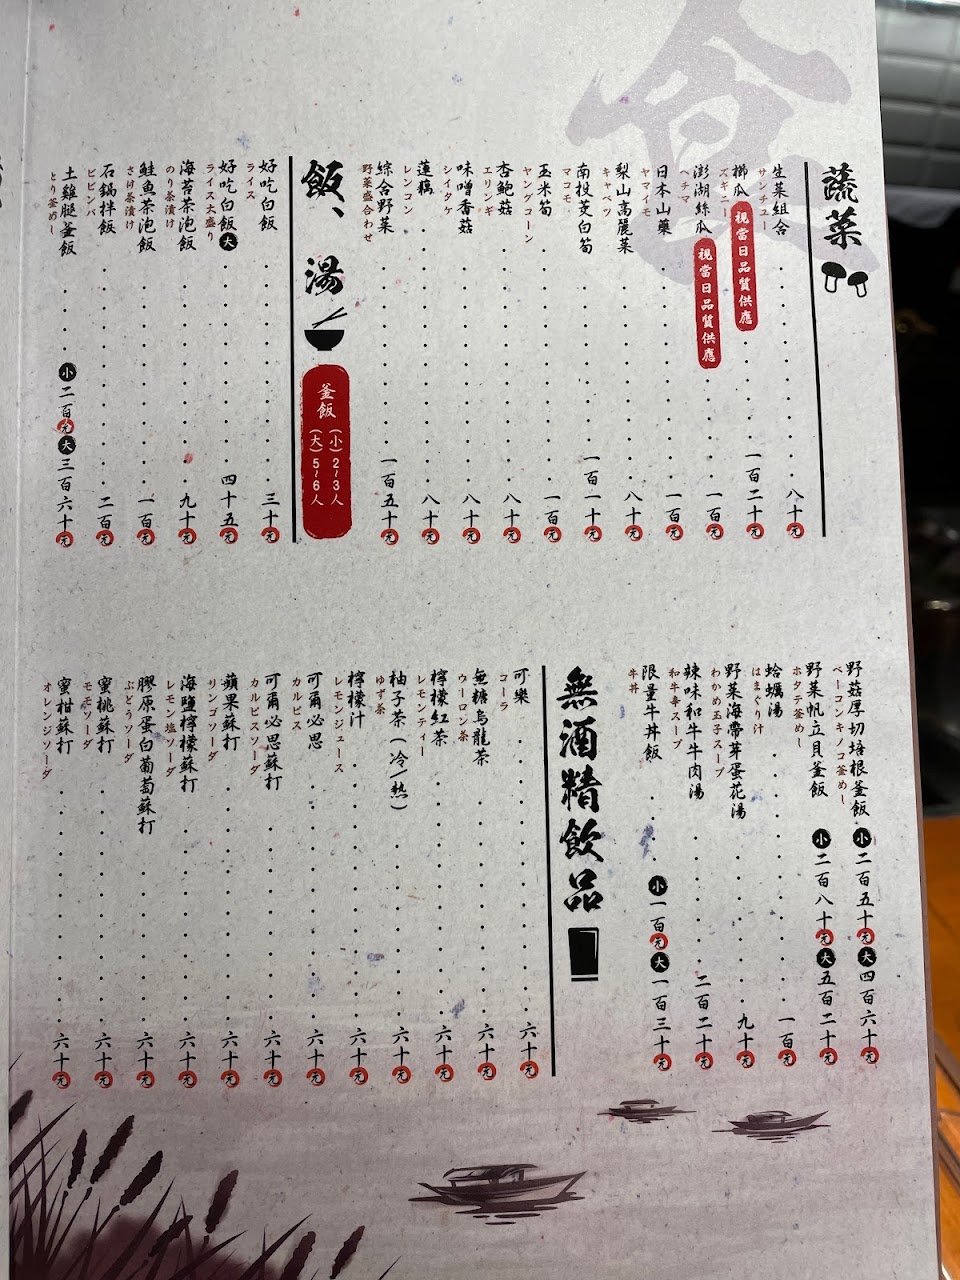 蔬菜
生菜組合 八十元
サンチュー
櫛瓜 視當日品質供應 一百二十元
ズキーニ
澎湖絲瓜 視當日品質供應 一百元
ヘチマ
日本山藥 一百元
ヤマイモ
梨山高麗菜 八十元
キャベツ
南投茭白筍 一百二十元
マコモ
玉米筍 一百元
ヤングコーン
杏鮑菇 八十元
エリンギ
味噌香菇 八十元
シイタケ
蓮藕 八十元
レンコン
綜合野菜 一百五十元
野菜盛合わせ
飯、湯
釜飯 (小)2~3人 (大)5~6人
好吃白飯 三十元
ライス
好吃白飯 大 四十五元
ライス大盛り
海苔茶泡飯 九十元
のり茶漬け
鮭魚茶泡飯 一百元
さけ茶漬け
石鍋拌飯 二百元
ビビンバ
土雞腿釜飯 小二百元 大三百六十元
とり釜めし
野菇厚切培根釜飯 小二百五十元 大四百六十元
ベーコンキノコ釜めし
野菜帆立貝釜飯 小二百八十元 大五百二十元
ホタテ釜めし
蛤蠣湯 一百元
はまぐり汁
野菜海帶芽蛋花湯 九十元
わかめ玉子スープ
辣味和牛牛肉湯 二百二十元
和牛辛スープ
限量牛丼飯 小一百元 大一百三十元
牛丼
無酒精飲品
可樂 六十元
コーラ
無糖烏龍茶 六十元
ウーロン茶
檸檬紅茶 六十元
レモンティー
柚子茶(冷/熱) 六十元
ゆず茶
檸檬汁 六十元
レモンジュース
可爾必思 六十元
カルピス
可爾必思蘇打 六十元
カルピスソーダ
蘋果蘇打 六十元
リンゴソーダ
海鹽檸檬蘇打 六十元
レモン塩ソーダ
膠原蛋白葡萄蘇打 六十元
ぶどうソーダ
蜜桃蘇打 六十元
モモソーダ
蜜柑蘇打 六十元
オレンジソーダ